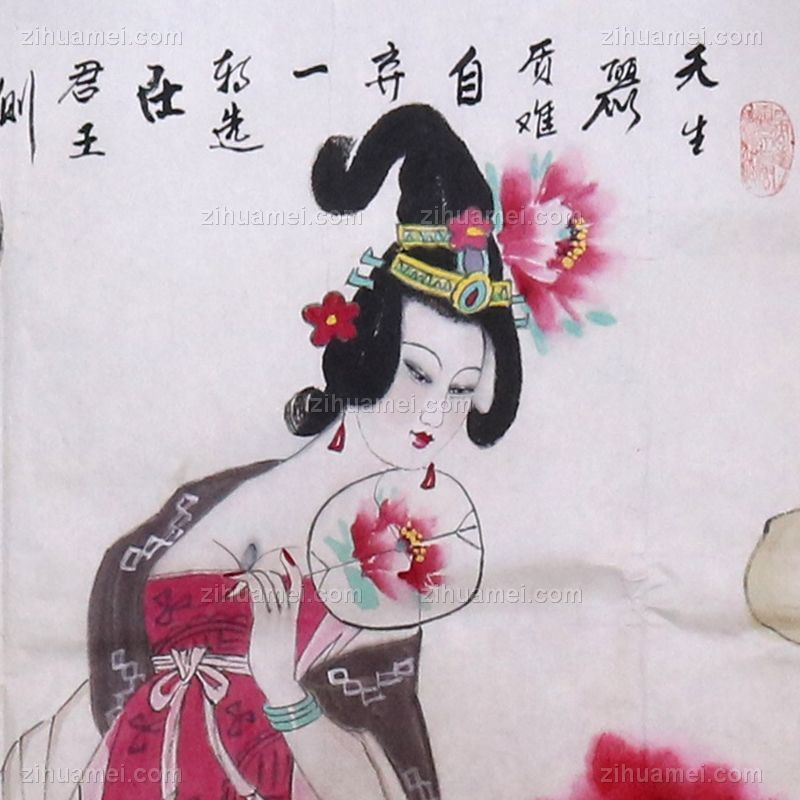 zihuamei.com
zihuamei.com
天生
麗
质难
自
弃
一
朝选
在
君王
侧
zihuamei.com
zihuamei.com
zihuamei.com
zihuamei.com
zihuamei.com
zihuamei.com
zihuamei.com